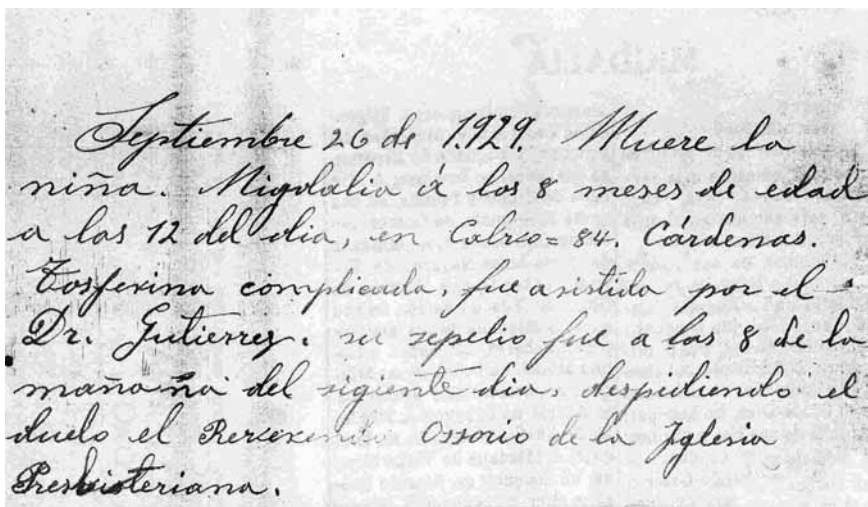 Septiembre 26 de 1.929. Muere la
niña. Migdalia á los 8 meses de edad
a las 12 del dia, en Calvo=84. Cárdenas.
Tosferina complicada, fue asistida por el
Dr. Gutierrez. su sepelio fue a las 8 de la
mañana del sigiente dia, despidiendo el
duelo el Ossorio de la Iglesia
Presbisteriana.